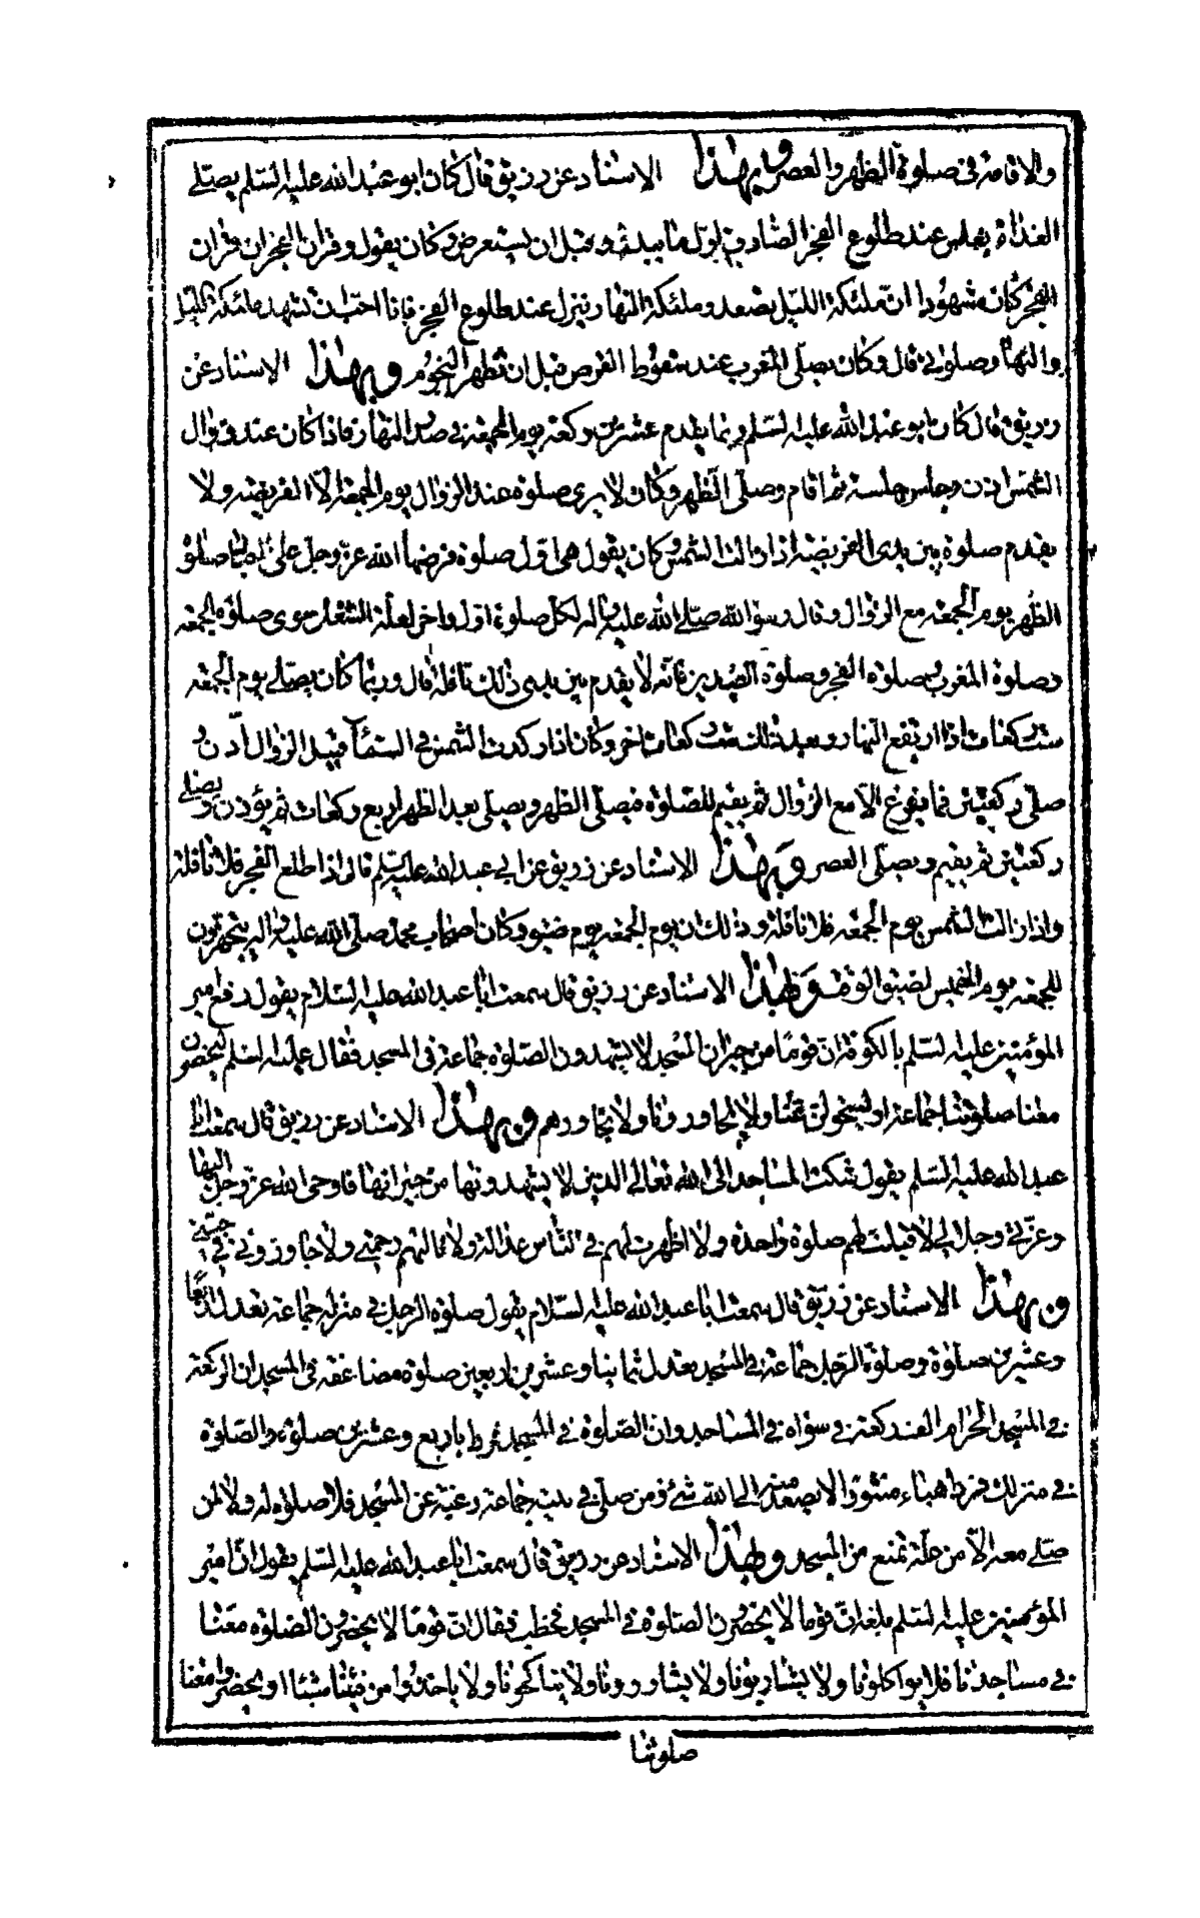 والاقامة فى صلوة الظهر والعصر وبهذا الاسناد عن رزيق قال كان ابو عبد الله عليه السلم يصلى
الغداة بغلس عند طلوع الفجر الصادق اول ما يبدو قبل ان يستعرض وكان يقول وقران الفجر ان قران
الفجر كان مشهودا ان ملئكة الليل تصعد وملئكة النهار تنزل عند طلوع الفجر فانا احب ان تشهد ملئكة الليل
والنهار صلوتى قال وكان يصلى المغرب عند سقوط القرص قبل ان تظهر النجوم وبهذا الاسناد عن
رزيق قال كان ابو عبد الله عليه السلم ربما يقدم عشرين ركعة يوم الجمعة فى صدر النهار فاذا كان عند زوال
الشمس اذن وجلس جلسة ثم اقام وصلى الظهر وكان لا يرى صلوة عند الزوال يوم الجمعة الا الفريضة ولا
يقدم صلوة بين يدى الفريضة اذا زالت الشمس وكان يقول هى اول صلوة فرضها الله عز وجل على العباد صلوة
الظهر يوم الجمعة مع الزوال وقال رسول الله صلى الله عليه واله لكل صلوة اول واخر لعلة الشغل سوى صلوة الجمعة
وصلوة المغرب وصلوة الفجر وصلوة العيدين فانه لا يقدم بين يدى ذلك نافلة قال وربما كان يصلى يوم الجمعة
ست ركعات اذا ارتفع النهار وبعد ذلك ست ركعات اخر وكان اذا ركدت الشمس فى السماء قبل الزوال اذن و
صلى ركعتين فما يفرغ الا مع الزوال ثم يقيم للصلوة فيصلى الظهر ويصلى بعد الظهر اربع ركعات ثم يؤذن ويصلى
ركعتين ثم يقيم ويصلى العصر وبهذا الاسناد عن رزيق عن ابى عبد الله عليه السلم قال اذا طلع الفجر فلا نافلة
واذا زالت الشمس يوم الجمعة فلا نافلة وذلك ان يوم الجمعة يوم ضيق وكان اصحاب محمد صلى الله عليه واله يتجهزون
للجمعة يوم الخميس لضيق الوقت وبهذا الاسناد عن رزيق قال سمعت ابا عبد الله عليه السلام يقول رفع امير
المؤمنين عليه السلم بالكوفة ان قوما من جيران المسجد لا يشهدون الصلوة جماعة فى المسجد فقال عليه السلم ليحضرن
معنا صلوتنا جماعة او ليتحولن عنا ولا يجاورونا ولا نجاورهم وبهذا الاسناد عن رزيق قال سمعت ابا
عبد الله عليه السلم يقول شكت المساجد الى الله تعالى الذين لا يشهدونها من جيرانها فاوحى الله عز وجل اليها
وعزتى وجلالى لا قبلت لهم صلوة واحدة ولا اظهرت لهم فى الناس عدالة ولا نالتهم رحمتى ولا جاورونى فى جنتى
وبهذا الاسناد عن رزيق قال سمعت ابا عبد الله عليه السلام يقول صلوة الرجل فى منزله جماعة تعدل اربعا
وعشرين صلوة وصلوة الرجل جماعة فى المسجد تعدل ثمانيا واربعين صلوة مضاعفة فى المسجد وان الركعة
فى المسجد الحرام الف ركعة فى سواه فى المساجد وان الصلوة فى المسجد فردا باربع وعشرين صلوة والصلوة
فى منزلك فردا هباء منثورا لا يصعد منه الى الله شئ ومن صلى فى بيته جماعة رغبة عن المسجد فلا صلوة له ولا لمن
صلى معه الا من علة تمنع من المسجد وبهذا الاسناد عن رزيق قال سمعت ابا عبد الله عليه السلم يقول ان امير
المؤمنين عليه السلم بلغه ان قوما لا يحضرون الصلوة فى المسجد فخطب فقال ان قوما لا يحضرون الصلوة معنا
فى مساجدنا فلا يواكلونا ولا يشاربونا ولا يشاورونا ولا يناكحونا ولا ياخذوا من فيئنا شيئا او يحضروا معنا
صلوتنا